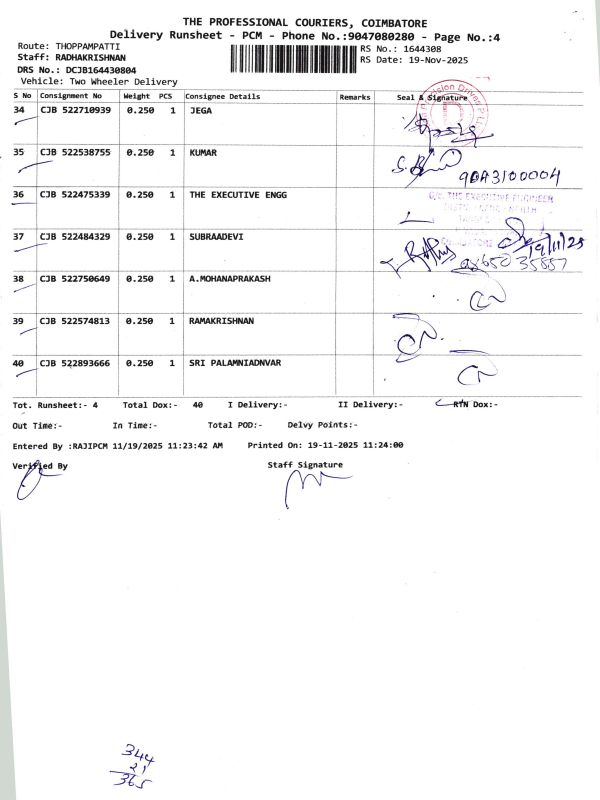 THE PROFESSIONAL COURIERS, COIMBATORE
Delivery Runsheet - PCM - Phone No.:9047080280 - Page No.:4
Route: THOPPAMPATTI
RS No.: 1644308
Staff: RADHAKRISHNAN
RS Date: 19-Nov-2025
DRS No.: DCJB164430804
Vehicle: Two Wheeler Delivery
S No Consignment No Weight PCS Consignee Details Remarks Seal & Signature
34 CJB 522710939 0.250 1 JEGA
35 CJB 522538755 0.250 1 KUMAR
9DA3100004
36 CJB 522475339 0.250 1 THE EXECUTIVE ENGG
O/o. THE EXECUTIVE ENGINEER
37 CJB 522484329 0.250 1 SUBRAADEVI
19/11/25
98650 35857
38 CJB 522750649 0.250 1 A.MOHANAPRAKASH
39 CJB 522574813 0.250 1 RAMAKRISHNAN
40 CJB 522893666 0.250 1 SRI PALAMNIADNVAR
Tot. Runsheet:- 4 Total Dox:- 40 I Delivery:- II Delivery:- RTN Dox:-
Out Time:- In Time:- Total POD:- Delvy Points:-
Entered By :RAJIPCM 11/19/2025 11:23:42 AM Printed On: 19-11-2025 11:24:00
Verified By Staff Signature
344
21
365